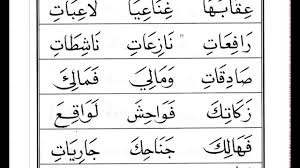 لَاعِبَاتِ عِقَابُهَا
نَاشِطَاتِ نَازِعَاتِ رَافِعَاتِ
فَمَالِئُ وَمَالِيَ صَادِقَاتِ
لَوَاقِعَ فَوَاحِشَ زَكَاتِكَ
جَارِيَاتِ جَنَاحِكَ فَهَالِكَ